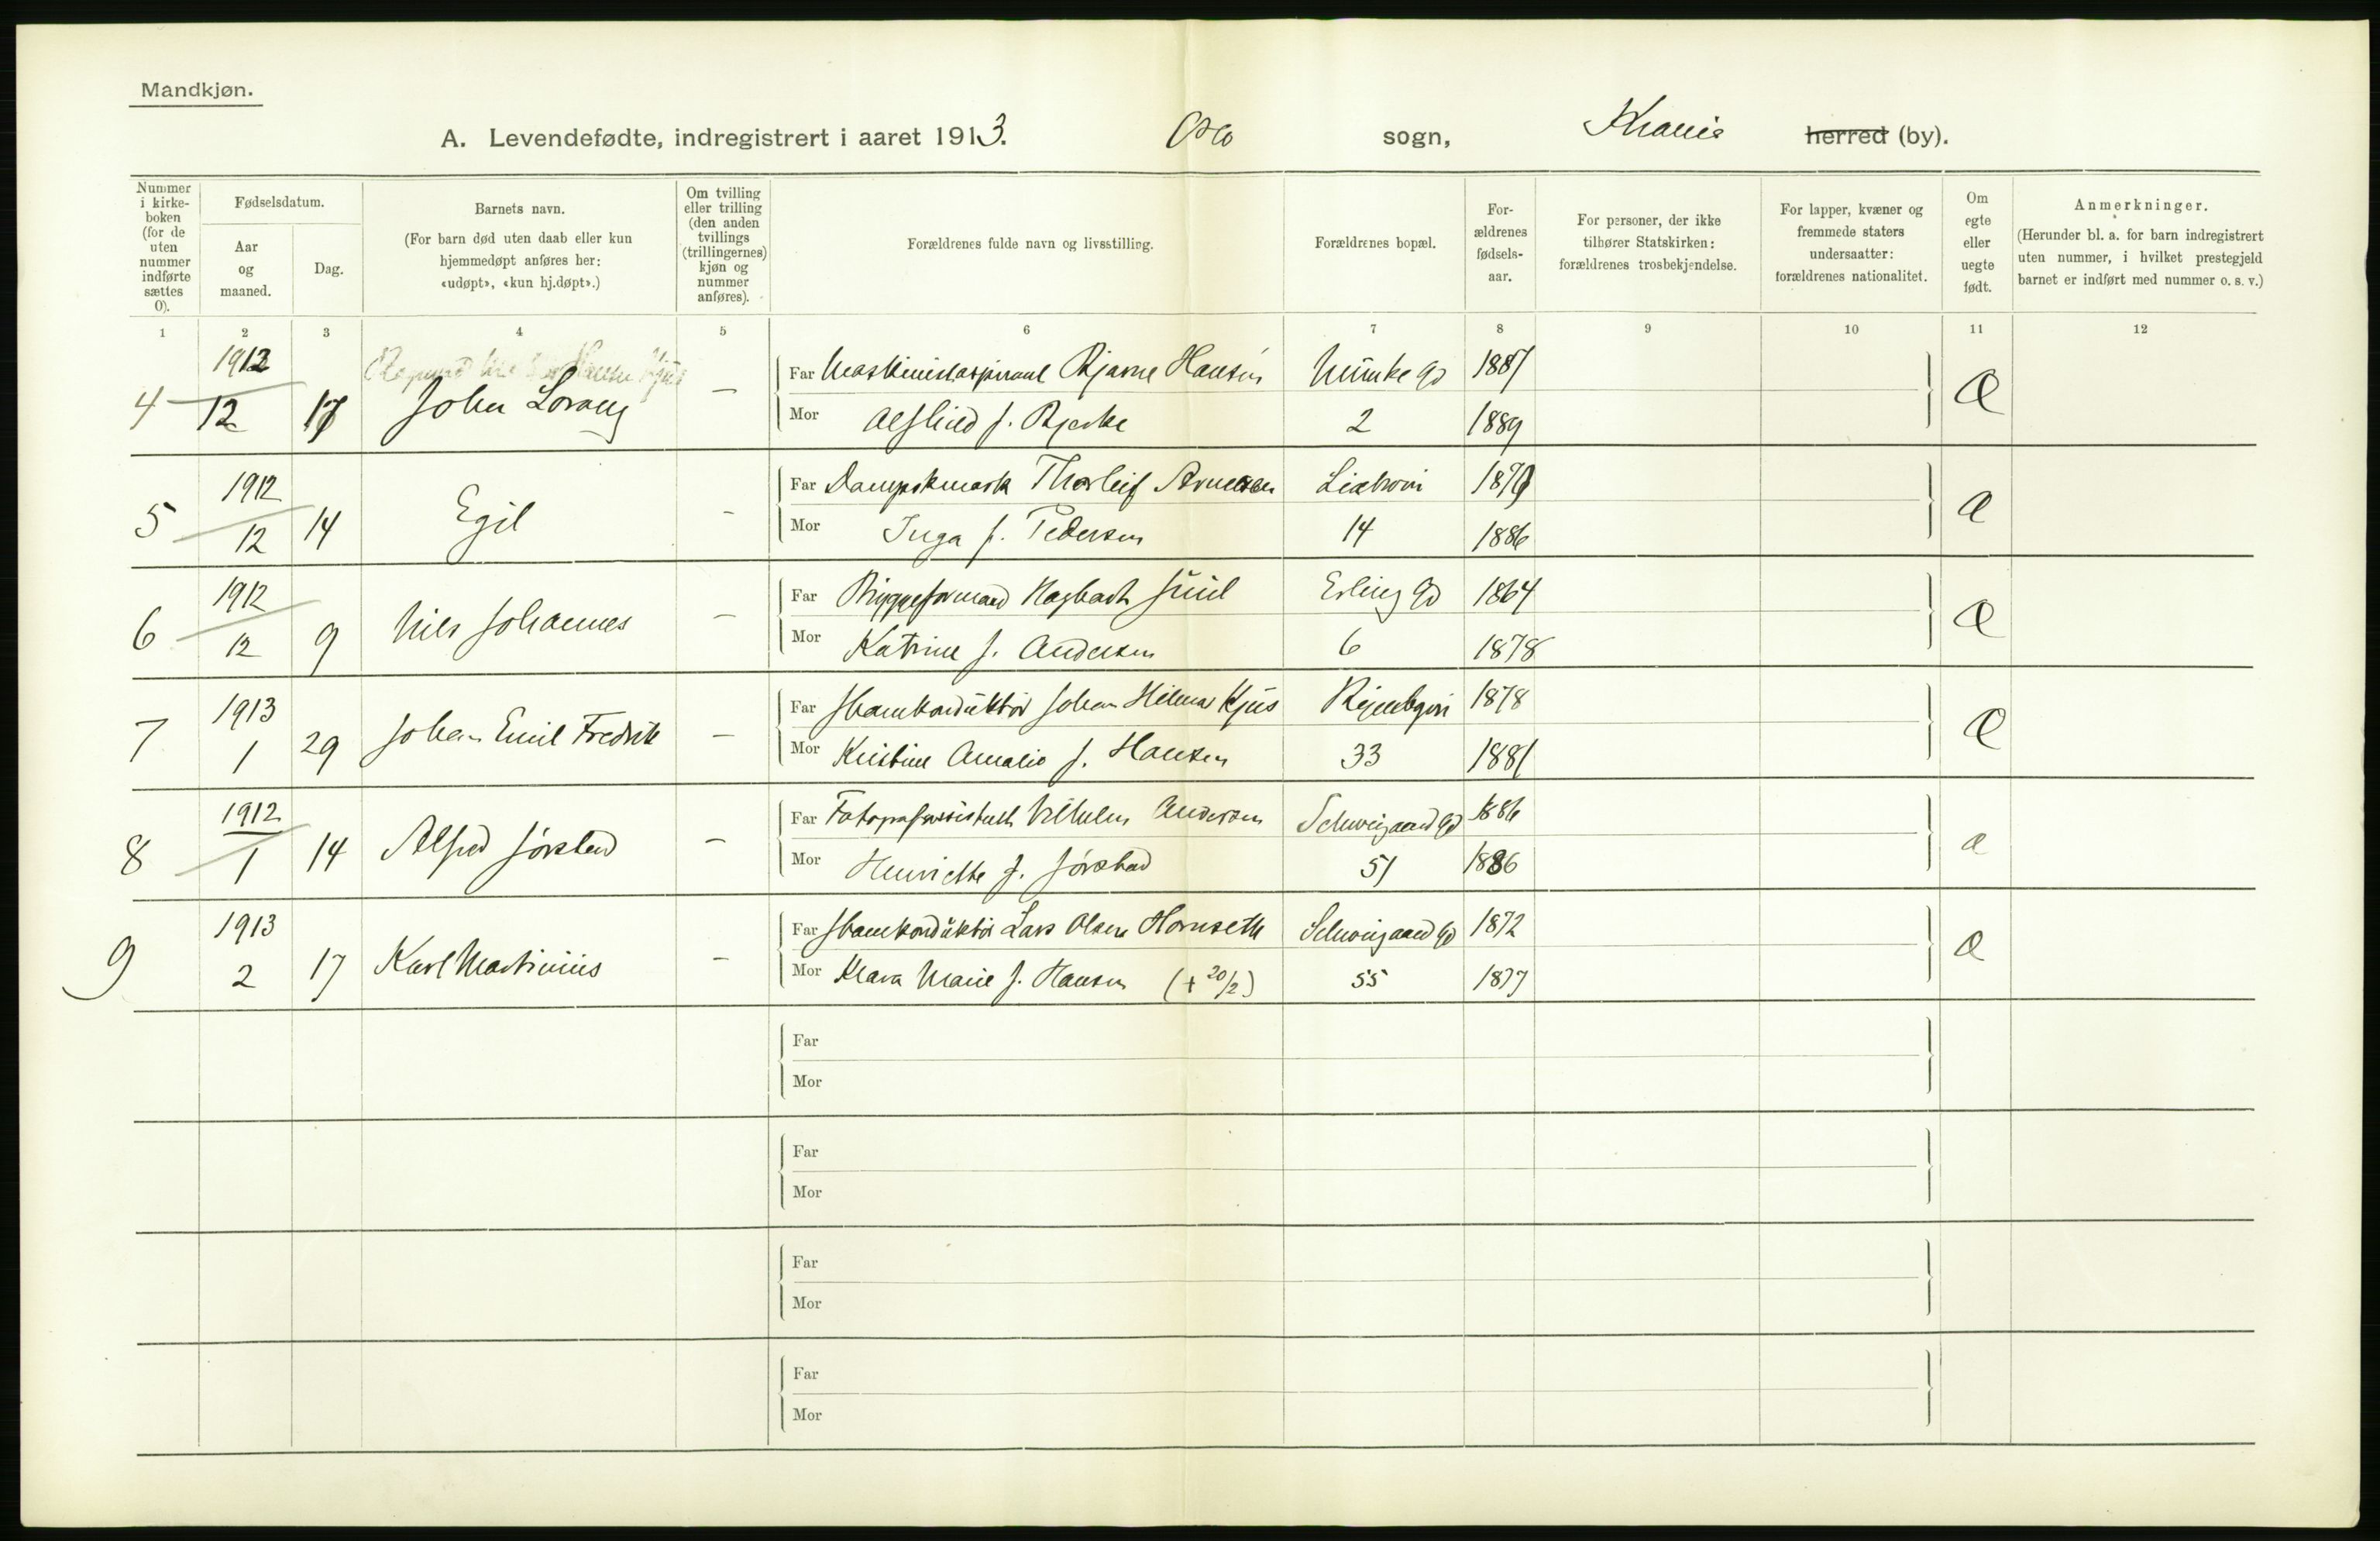 Mandkjøn.
A. Levendefødte, indregistrert i aaret 1913. Oslo sogn, Kr.ania herred (by).
Nummer i kirkeboken (for de uten nummer indførte sættes 0).
Fødselsdatum.
Aar og maaned.
Dag.
Barnets navn.
(For barn død uten daab eller kun hjemmedøpt anføres her: «udøpt», «kun hj.døpt».)
Om tvilling eller trilling (den anden tvillings (trillingernes) kjøn og nummer anføres).
Forældrenes fulde navn og livsstilling.
Forældrenes bopæl.
Forældrenes fødselsaar.
For personer, der ikke tilhører Statskirken: forældrenes trosbekjendelse.
For lapper, kvæner og fremmede staters undersaatter: forældrenes nationalitet.
Om egte eller uegte født.
Anmerkninger.
(Herunder bl. a. for barn indregistrert uten nummer, i hvilket prestegjeld barnet er indført med nummer o. s. v.)
1 2 3 4 5 6 7 8 9 10 11 12
4 1912 12 17 John Lorang –
Far Maskinistaspirant Bjarne Hansen Munke gd 1887
Mor Alfhild f. Bjerke 2 1889
Æ
5 1912 12 14 Egil –
Far Thorleif Arnesen 1879
Mor Inga f. Pedersen 14 1886
Æ
6 1912 12 9 Nils Johannes –
Far Bryggeformand Hagbart Juul Erling gd 1864
Mor Katrine f. Andersen 6 1878
Æ
7 1913 1 29 Johan Emil Fredrik –
Far Johan Hilmar Kjus 1878
Mor Kristine Amalie f. Hansen 33 1881
Æ
8 1912 1 14 Alfred Jørstad –
Far Fotografassistent Vilhelm Andersen Schweigaard gd 1886
Mor Henriette f. Jørstad 51 1886
Æ
9 1913 2 17 Karl Martinius –
Far Lars Olsen Hornseth Schweigaard gd 1872
Mor Klara Marie f. Hansen (+ 20/2) 55 1877
Æ
Far
Mor
Far
Mor
Far
Mor
Far
Mor